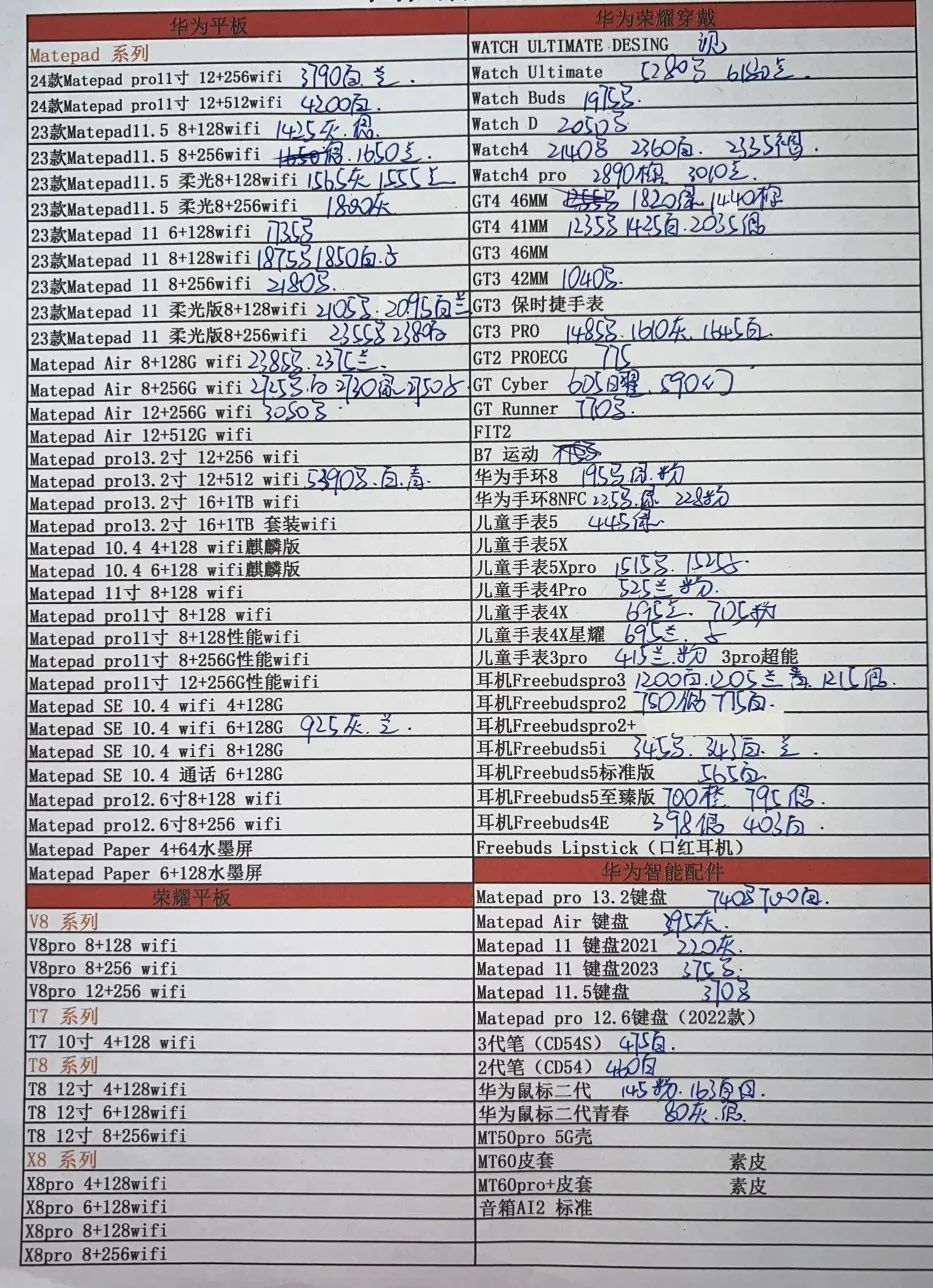 华为平板
Matepad 系列
24款Matepad pro11寸 12+256wifi 3790白 兰.
24款Matepad pro11寸 12+512wifi 4200白.
23款Matepad11.5 8+128wifi 1425灰.银.
23款Matepad11.5 8+256wifi 1650兰.
23款Matepad11.5 柔光8+128wifi 1565灰 1555兰
23款Matepad11.5 柔光8+256wifi 1800灰
23款Matepad 11 6+128wifi 1735
23款Matepad 11 8+128wifi 1875 1850白.
23款Matepad 11 8+256wifi 2180
23款Matepad 11 柔光版8+128wifi 2105 2095白兰
23款Matepad 11 柔光版8+256wifi 2355 2380白
Matepad Air 8+128G wifi 2385 2375兰.
Matepad Air 8+256G wifi 2725 白 2730绿 2750
Matepad Air 12+256G wifi 3050
Matepad Air 12+512G wifi
Matepad pro13.2寸 12+256 wifi
Matepad pro13.2寸 12+512 wifi 5390 白.青.
Matepad pro13.2寸 16+1TB wifi
Matepad pro13.2寸 16+1TB 套装wifi
Matepad 10.4 4+128 wifi麒麟版
Matepad 10.4 6+128 wifi麒麟版
Matepad 11寸 8+128 wifi
Matepad pro11寸 8+128 wifi
Matepad pro11寸 8+128性能wifi
Matepad pro11寸 8+256G性能wifi
Matepad pro11寸 12+256G性能wifi
Matepad SE 10.4 wifi 4+128G
Matepad SE 10.4 wifi 6+128G 925灰.兰.
Matepad SE 10.4 wifi 8+128G
Matepad SE 10.4 通话 6+128G
Matepad pro12.6寸8+128 wifi
Matepad pro12.6寸8+256 wifi
Matepad Paper 4+64水墨屏
Matepad Paper 6+128水墨屏
荣耀平板
V8 系列
V8pro 8+128 wifi
V8pro 8+256 wifi
V8pro 12+256 wifi
T7 系列
T7 10寸 4+128 wifi
T8 系列
T8 12寸 4+128wifi
T8 12寸 6+128wifi
T8 12寸 8+256wifi
X8 系列
X8pro 4+128wifi
X8pro 6+128wifi
X8pro 8+128wifi
X8pro 8+256wifi
华为荣耀穿戴
WATCH ULTIMATE DESING 现
Watch Ultimate 5280 6180兰.
Watch Buds 1975
Watch D 2050
Watch4 2140 2360白. 2335
Watch4 pro 2890棕 3010兰.
GT4 46MM 1820绿 1440棕
GT4 41MM 1235 1425白.2035银
GT3 46MM
GT3 42MM 1040
GT3 保时捷手表
GT3 PRO 1485 1610灰.1645白.
GT2 PROECG 775
GT Cyber 605曜.590幻
GT Runner 770
FIT2
B7 运动
华为手环8 195 绿.粉
华为手环8NFC 225 绿 228粉
儿童手表5 445绿
儿童手表5X
儿童手表5Xpro 1515 1525
儿童手表4Pro 525兰.粉.
儿童手表4X 695兰. 705粉
儿童手表4X星耀 695兰.
儿童手表3pro 415兰.粉 3pro超能
耳机Freebudspro3 1200白.1205兰 青.1215银.
耳机Freebudspro2 750银 775白.
耳机Freebudspro2+
耳机Freebuds5i 345 343白.兰.
耳机Freebuds5标准版 565白.
耳机Freebuds5至臻版 700橙 795银.
耳机Freebuds4E 398银 403白.
Freebuds Lipstick（口红耳机）
华为智能配件
Matepad pro 13.2键盘 740 700白.
Matepad Air 键盘 395灰.
Matepad 11 键盘2021 220灰.
Matepad 11 键盘2023 375
Matepad 11.5键盘 370
Matepad pro 12.6键盘（2022款）
3代笔（CD54S） 475白.
2代笔（CD54） 460白
华为鼠标二代 145粉.163
华为鼠标二代青春 80灰.银.
MT50pro 5G壳
MT60皮套 素皮
MT60pro+皮套 素皮
音箱AI2 标准